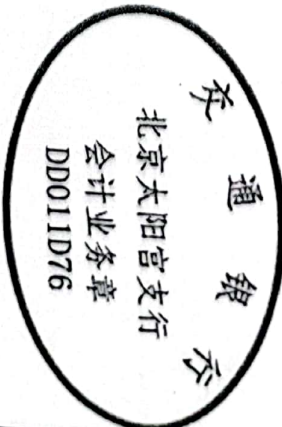 交通银行
北京太阳宫支行
会计业务章
DD011D76